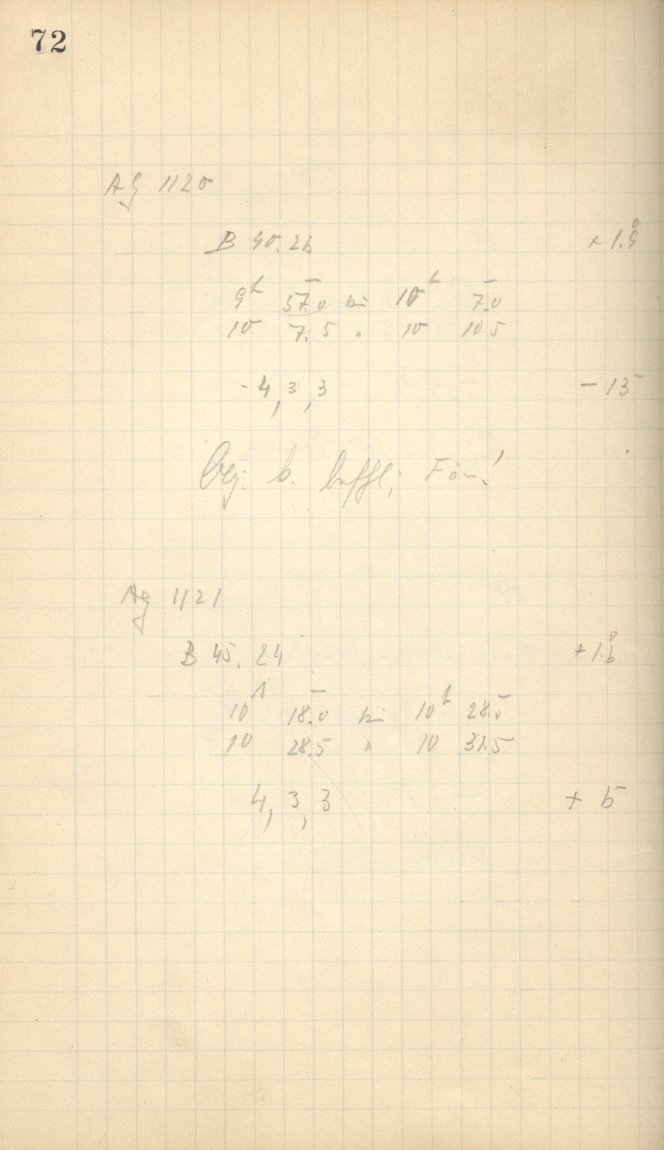 72
AG 1120
B 40.26 + 1.9°
9h 57.0 bis 10h 7.0
10 7.5 " 10 10.5
- 4, 3, 3 - 13
b.
Ag 1121
B 45. 24 + 1.6°
10h 18.0 bis 10h 28.0
10 28.5 " 10 31.5
4, 3, 3 + 6